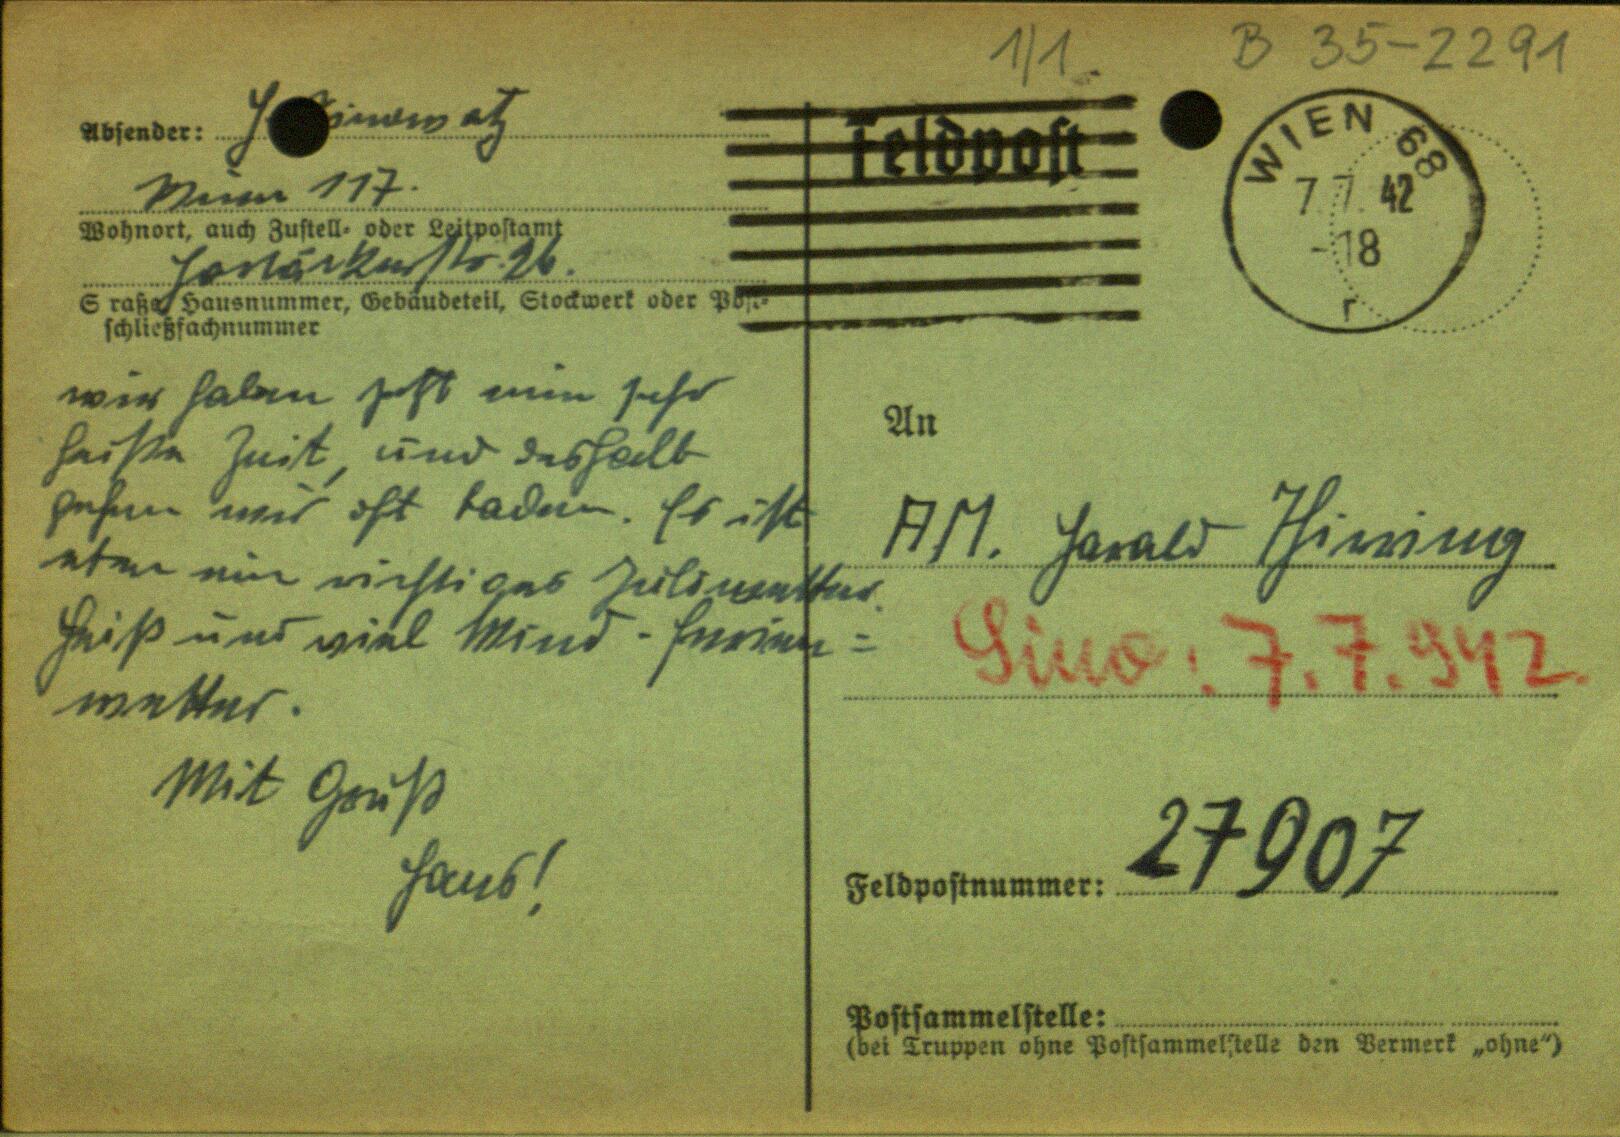 1/1 B 35-2291
Absender:
Wien 117.
Wohnort, auch Zustell- oder Leitpostamt
26.
S raße, Hausnummer, Gebäudeteil, Stockwerk oder Post-
schließfachnummer
Feldpost
WIEN 68
7.7.42
-18
r
wir haben jetzt eine sehr
heiße Zeit, und deshalb
gehen wir oft baden. Es ist
eben ein richtiges Juliwetter.
Heiß und viel Wind - Ferien=
wetter.
Mit Gruß
Hans!
An
AM. Harald
7.7.942.
Feldpostnummer: 27907
Postsammelstelle:
(bei Truppen ohne Postsammelstelle den Vermerk „ohne“)